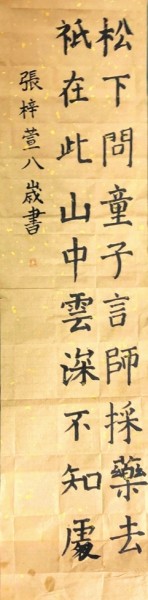 松下問童子言師採藥去
祇在此山中雲深不知處
張梓萱八歲書